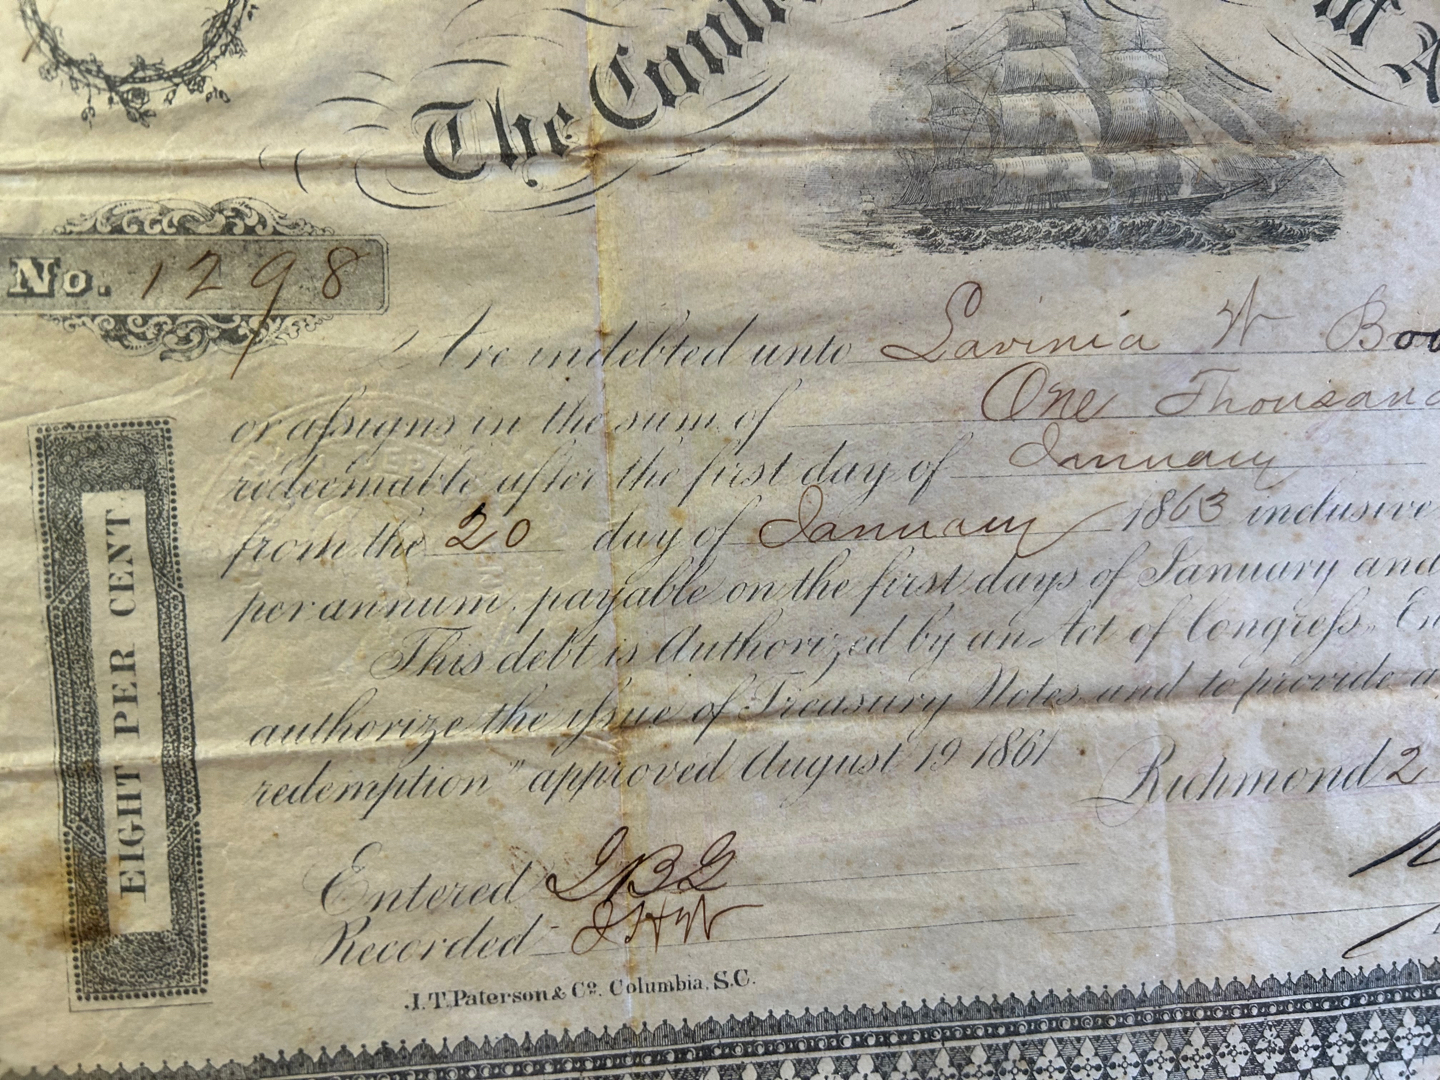 The
No. 1298
Are indebted unto Lavinia W
or assigns in the sum of One Thousand
redeemable after the first day of January
from the 20 day of January 1863 inclusive
per annum, payable on the first days of January and
This debt is Authorized by an Act of Congress.
authorize the issue of Treasury Notes and to provide a
redemption" approved August 19 1861
Richmond 2
EIGHT PER CENT
Entered
Recorded
J.T. Paterson & Co. Columbia, S.C.